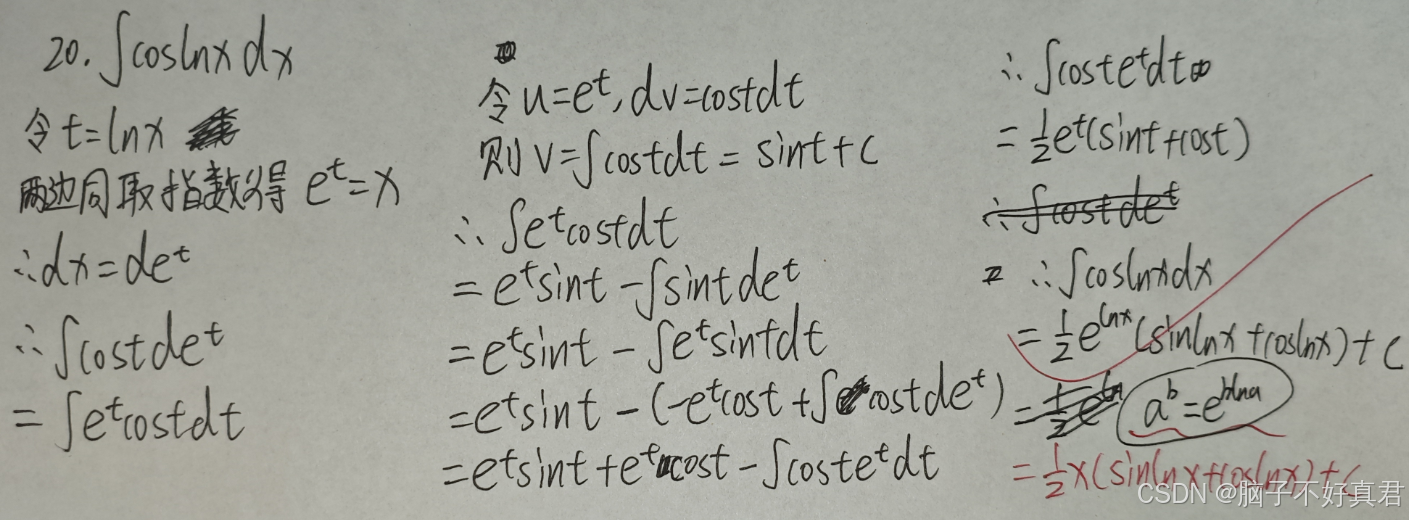 20. ∫coslnx dx
令t=lnx
两边同取指数得 e^t=x
∴dx=de^t
∴∫costde^t
=∫e^tcostdt
令u=e^t,dv=costdt
则v=∫costdt=sint+C
∴∫e^tcostdt
=e^tsint-∫sintde^t
=e^tsint-∫e^tsintdt
=e^tsint-(-e^tcost+∫costde^t)
=e^tsint+e^tcost-∫coste^tdt
∴∫coste^tdt
=1/2e^t(sint+cost)
∴∫costde^t
∴∫coslnxdx
=1/2e^lnx(sinlnx+coslnx)+C
a^b=e^blna
=1/2x(sinlnx+coslnx)+C
CSDN @脑子不好真君